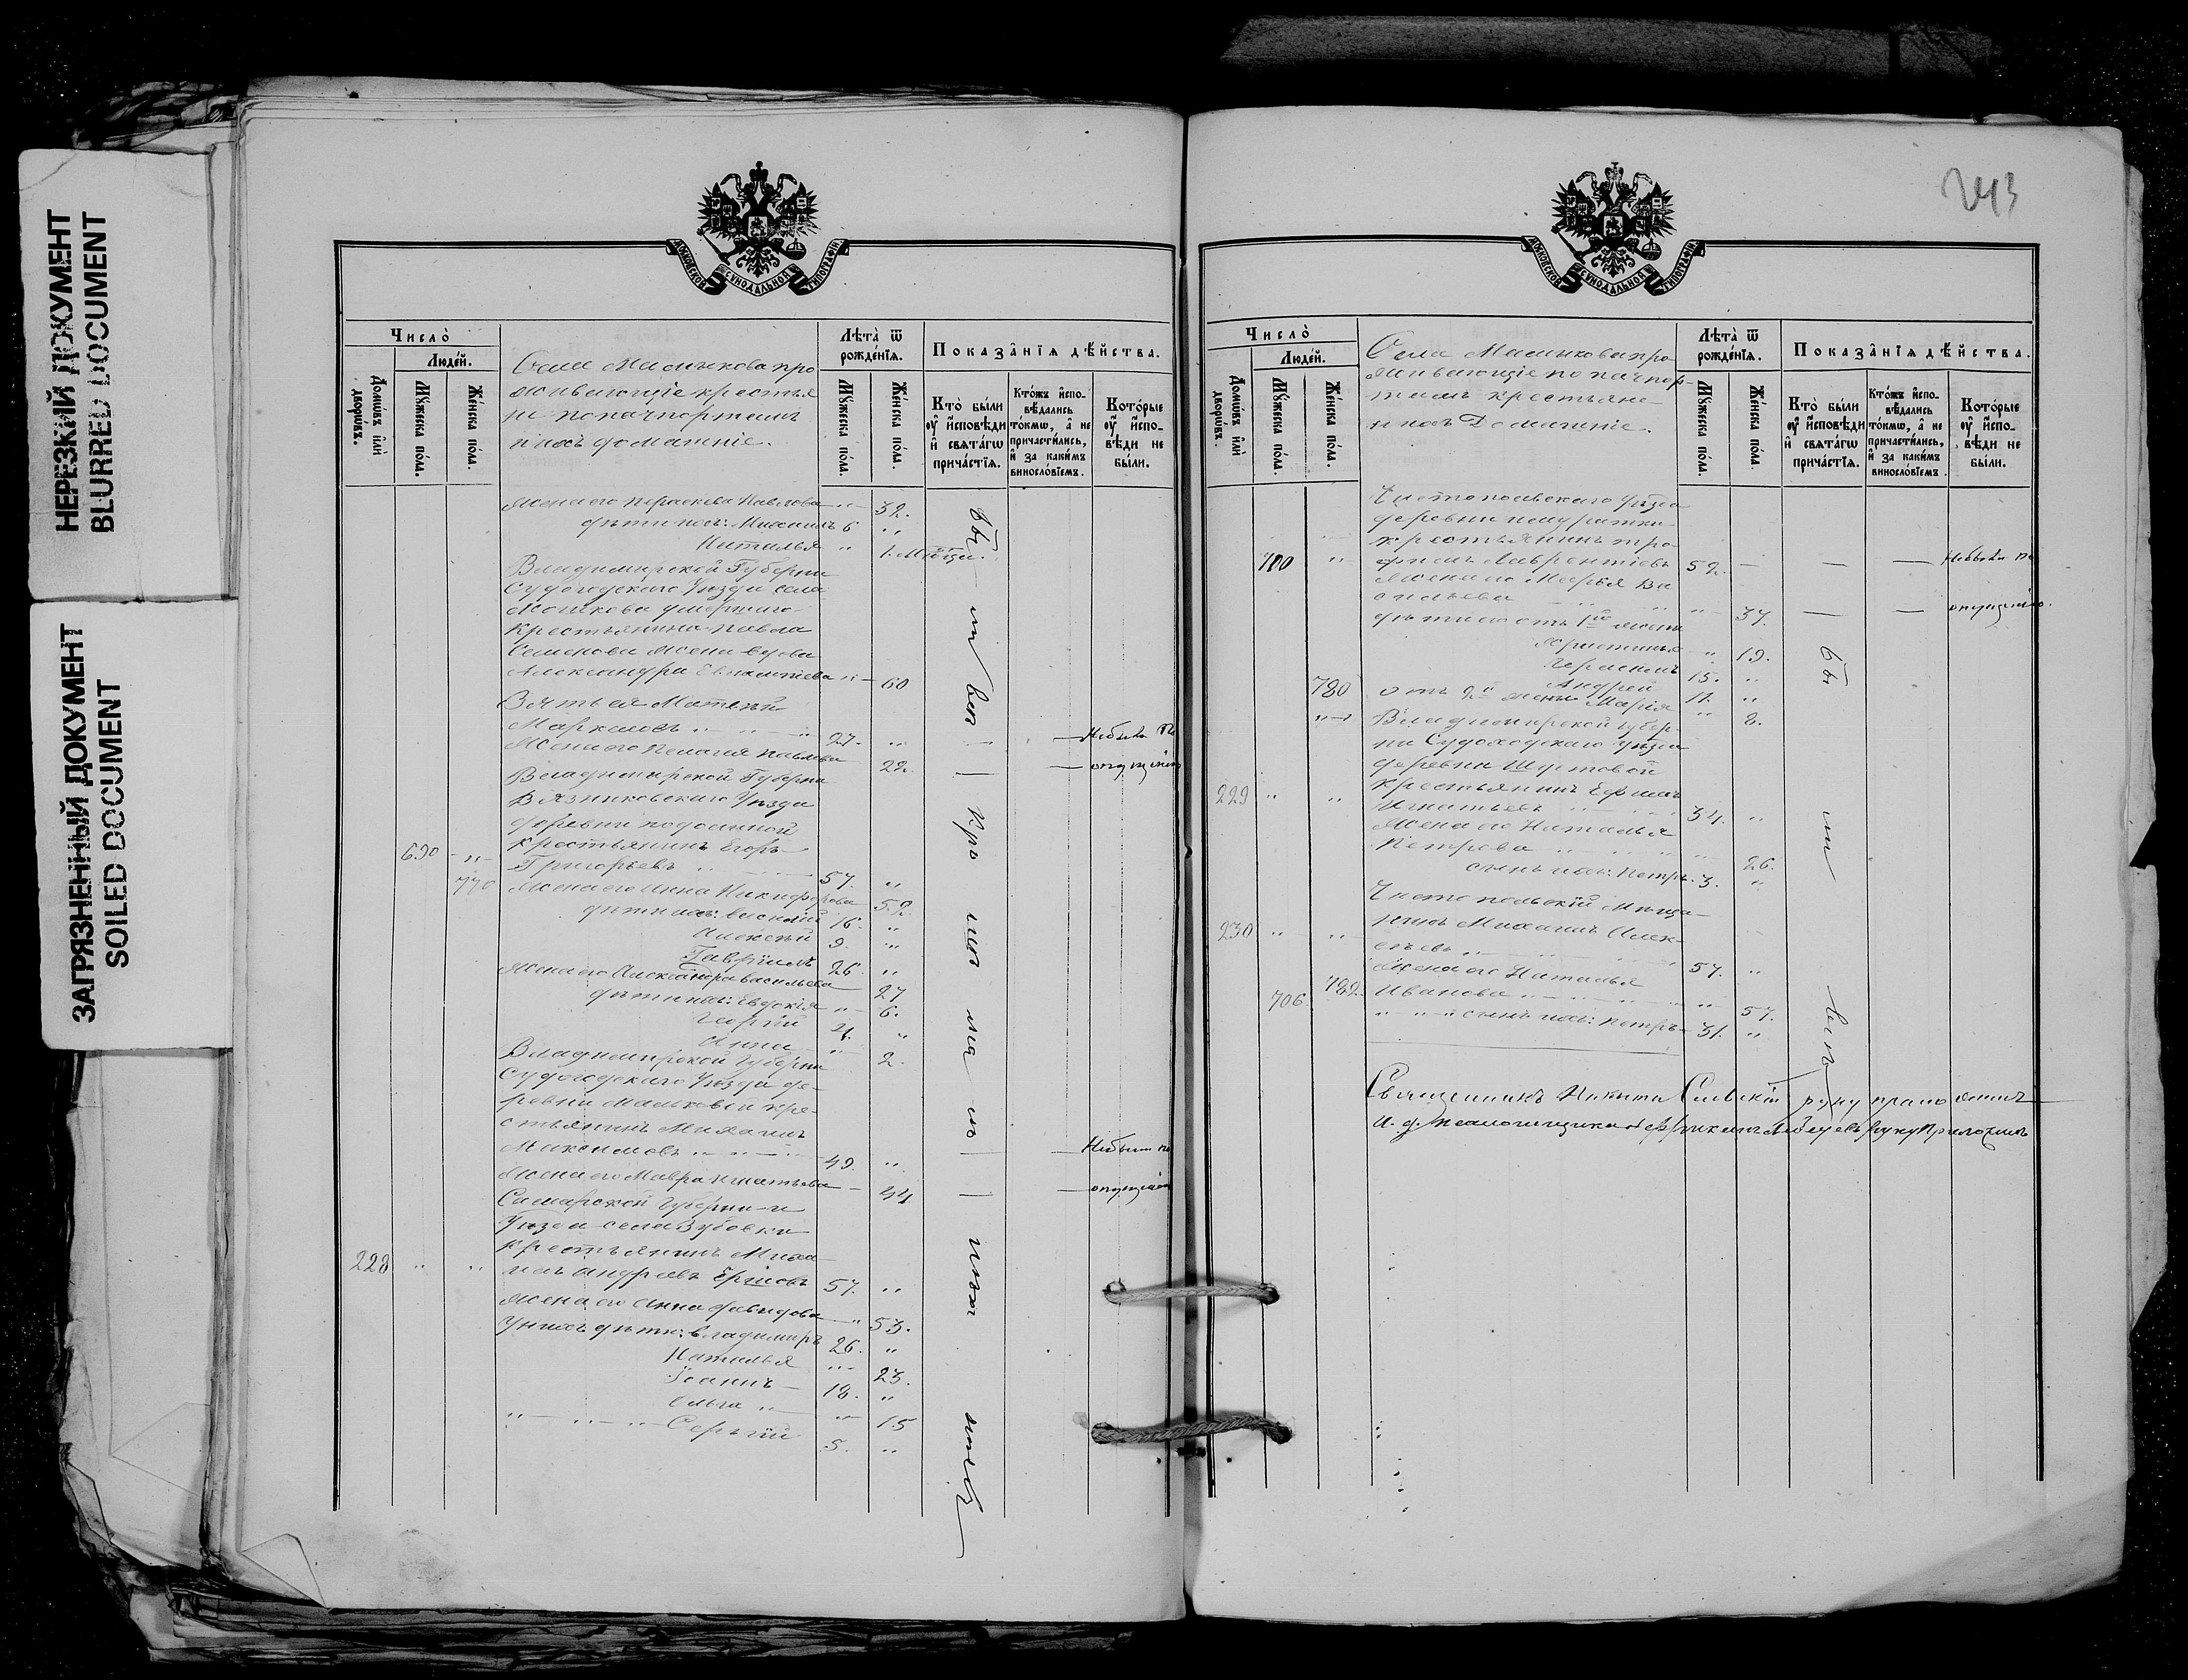 НЕРЕЗКИЙ ДОКУМЕНТ
BLURRED DOCUMENT
ЗАГРЯЗНЕННЫЙ ДОКУМЕНТ
SOILED DOCUMENT
МОСКОВСКОЙ СѴНОДАЛЬНОЙ ТИПОГРАФІИ
Число̀
Люде́й.
Домѡ́въ и҆лѝ дворѡ́въ.
Мꙋ́жеска по́ла.
Же́нска по́ла.
Села Мамыкова про
живающіе крестья
не по пачпортамъ
и ихъ домашніе.
Лѣта̀ ѿ рожде́нїѧ.
Мꙋ́жеска по́ла.
Же́нска по́ла.
Показа̂нїѧ дѣ́йства.
Кто̀ бы́ли ᲂу҆ и҆сповѣди и҆ свѧта́гѡ причáстїѧ.
Кто́жъ и҆спо-вѣ́дались то́кмѡ, а҆ не причасти́лись, и҆ за каки́мъ винослóвїемъ.
Кото́рые ᲂу҆ и҆спо-вѣди не бы́ли.
Жена его Параскева Павлова " 32.
дѣти ихъ: Михаилъ 6 "
Наталья " 1.
Владимирской Губерни
Судогодскаго Уѣзда села
Мошкова умершаго
крестьянина Павла
Семенова жена вдова
Александра " 60
Зять ея Матвѣй
Маркаловъ " 27. " — Небыли по
Жена его Пелагея Павлова 22. — опущенію
Владимирской Губерни
Вязниковскаго Уѣзда
деревни
крестьянинъ Егоръ
690 " Григорьевъ 57. "
770 Жена его Анна Никифорова 52.
дѣти ихъ: Василий 16. "
Алексѣй 9. "
Гавріилъ 26. "
Жена его Александра Васильева 27
дѣти ихъ: Евдокія " 6.
Георгій 4. "
Анна " 2.
Владимирской Губерни
Судогодскаго Уѣзда де-
ревни кре-
стьянинъ Михаилъ
Максимовъ 49. " — Небыли по
Жена его Мавра Игнатьева 44 — опущенію
Самарской Губерни и
Уѣзда села Зубовки
крестьянинъ Миха-
228 " " илъ Андреевъ Ершовъ 57. "
Жена его Анна Давидова " 53.
У нихъ дѣти: Владимиръ 26. "
Наталья " 23.
Іоаннъ 18. "
Ольга " 15
Сергій 5. "
243
МОСКОВСКОЙ СѴНОДАЛЬНОЙ ТИПОГРАФІИ
Число̀
Люде́й.
Домѡ́въ и҆лѝ дворѡ́въ.
Мꙋ́жеска по́ла.
Же́нска по́ла.
Села Мамыкова про-
живающіе по пачпор-
тамъ крестьяне
и ихъ Домашніе.
Лѣта̀ ѿ рожде́нїѧ.
Мꙋ́жеска по́ла.
Же́нска по́ла.
Показа̂нїѧ дѣ́йства.
Кто̀ бы́ли ᲂу҆ и҆сповѣди и҆ свѧта́гѡ причáстїѧ.
Кто́жъ и҆спо-вѣ́дались то́кмѡ, а҆ не причасти́лись, и҆ за каки́мъ винослóвїемъ.
Кото́рые ᲂу҆ и҆спо-вѣди не бы́ли.
Чистопольскаго Уѣзда
деревни
крестьянинъ Тро-
700 " фимъ Лаврентіевъ 52. — — — Небыли по
Жена его Марья Ва
сильева " 37. — — опущенію.
дѣти его отъ 1ой жены
Христинья " 19.
Герасимъ 15. "
Андрей 11. "
780 отъ 2й жены Марія " 2.
Владимирской Губер-
ни Судогодскаго Уѣзда
деревни
крестьянинъ Ефимъ
229 " " Игнатьевъ 34. "
Жена его Наталья
Петрова " 26.
сынъ ихъ: Петръ 3. "
Чистопольскій мѣща-
нинъ Михаилъ Алек-
230 " " сѣевъ 57. "
Жена его Наталья
782. Иванова " 57.
706 сынъ ихъ: Петръ 31. "
Священникъ Никита руку приложилъ
И. д. псаломщика руку приложилъ